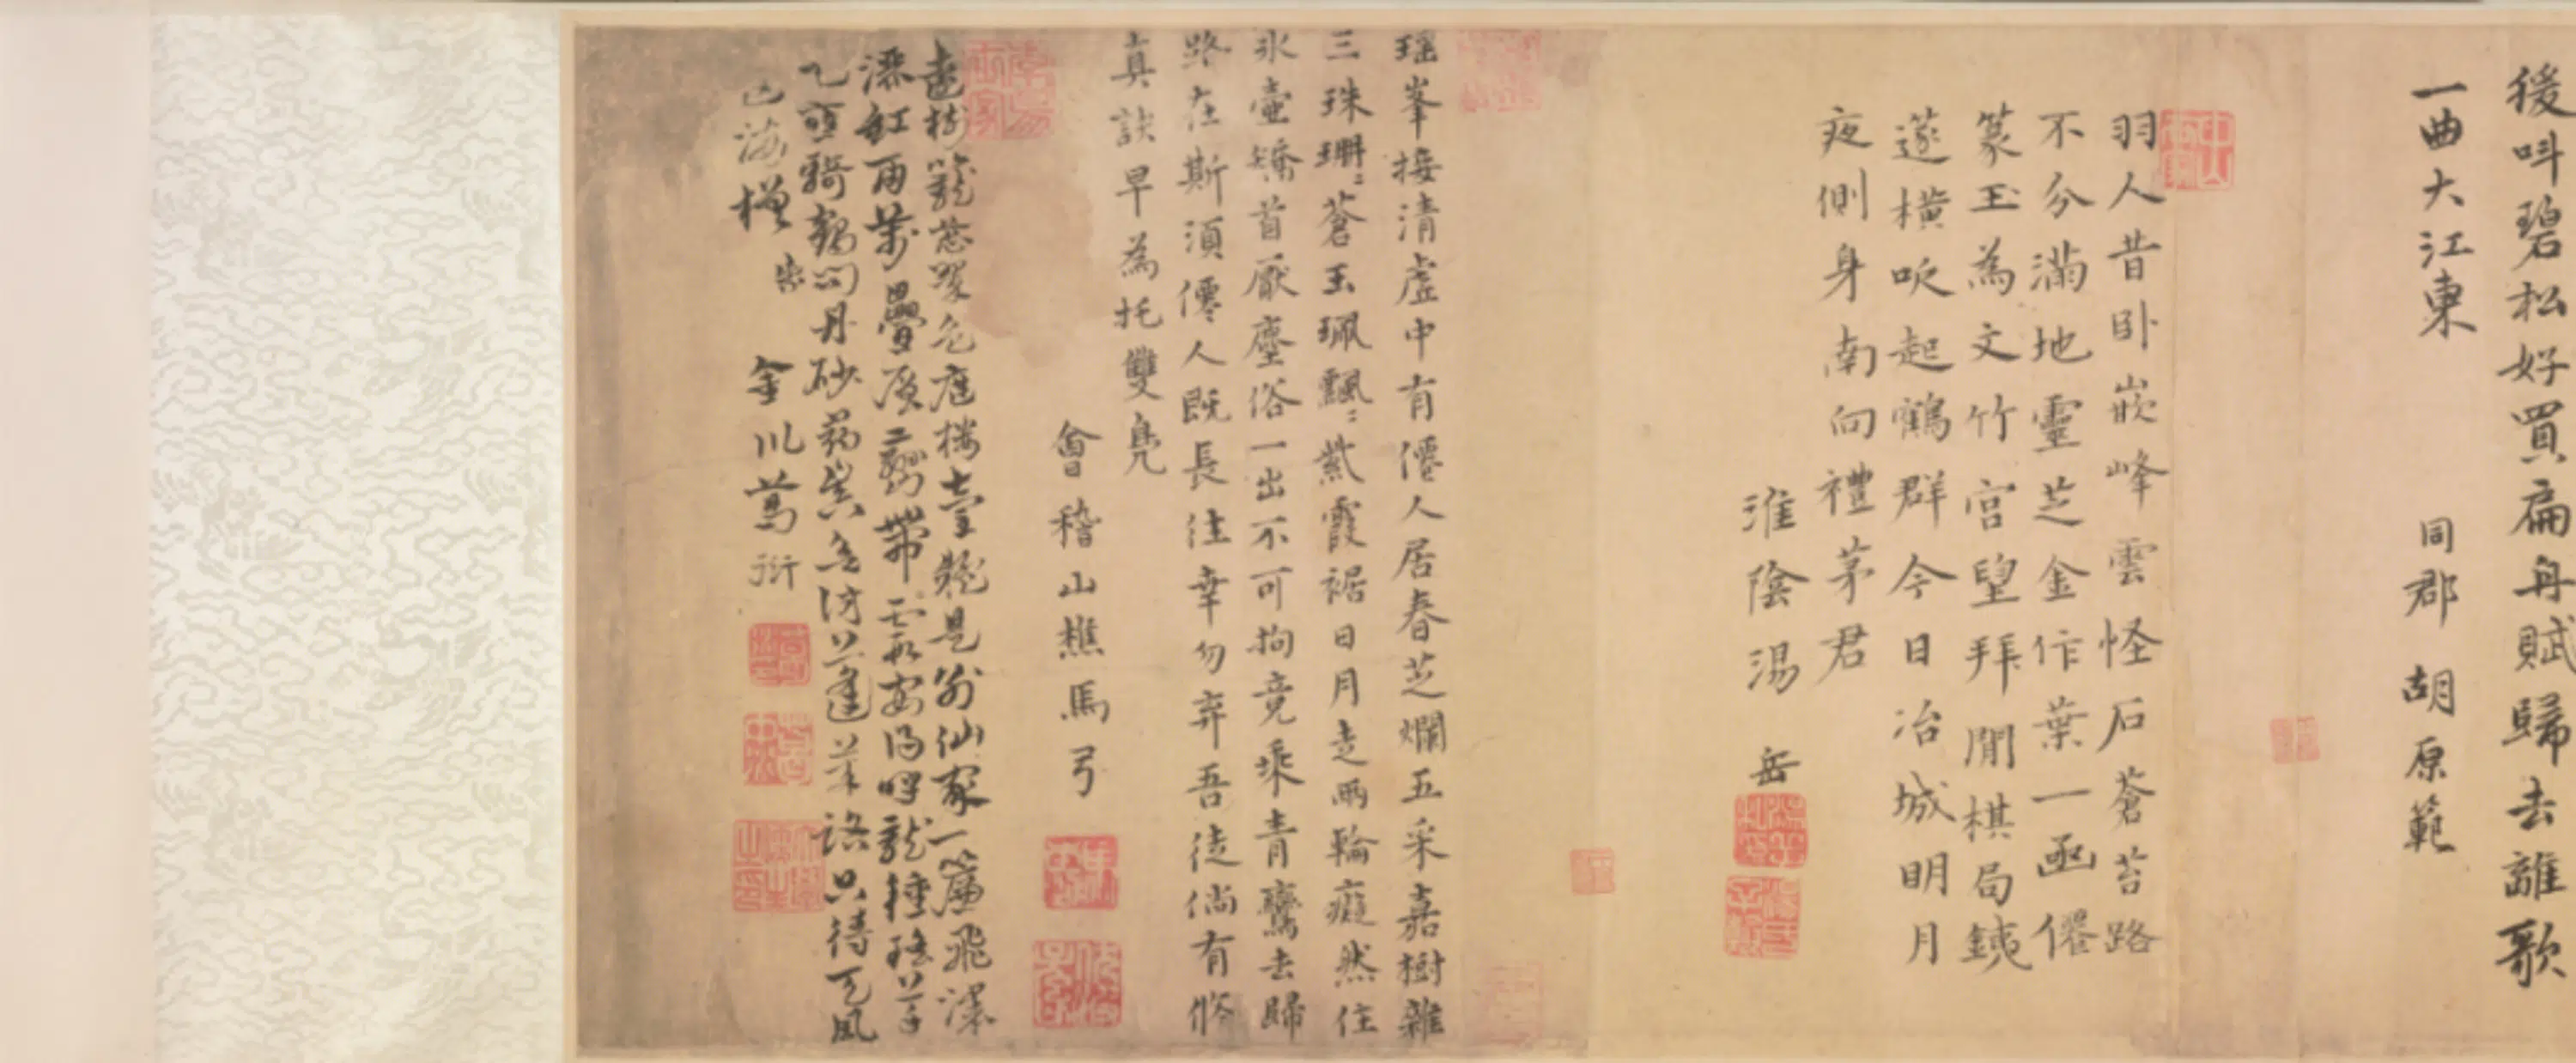 緩叫碧松好買扁舟賦歸去誰歌
一曲大江東
同郡 胡原範
羽人昔卧嵌峰雲怪石蒼苔路
不分滿地靈芝金作葉一函僊
篆玉為文竹宮望拜閒棋局鐵
邃橫吹起鶴群今日冶城明月
夜側身南向禮茅君
淮陰湯岳
瑶峯接清虛中有僊人居春芝爛五采嘉樹雜
三珠珊〻蒼玉珮飄〻紫霞裾日月走兩輪癡然住
氷壷矯首厭塵俗一出不可拘竟乘青鸞去歸
路在斯須僊人既長往幸勿弃吾徒倘有脩
真訣早為托雙鳧
會稽山樵馬弓
樹籠葱翠色庭樓臺疑是列仙家一簾飛瀑
添紅雨萬疊層巒帶雲霞安得呼龍種瑶草
還騎鶴問丹砂蓬萊路只待天風
海槎
金川